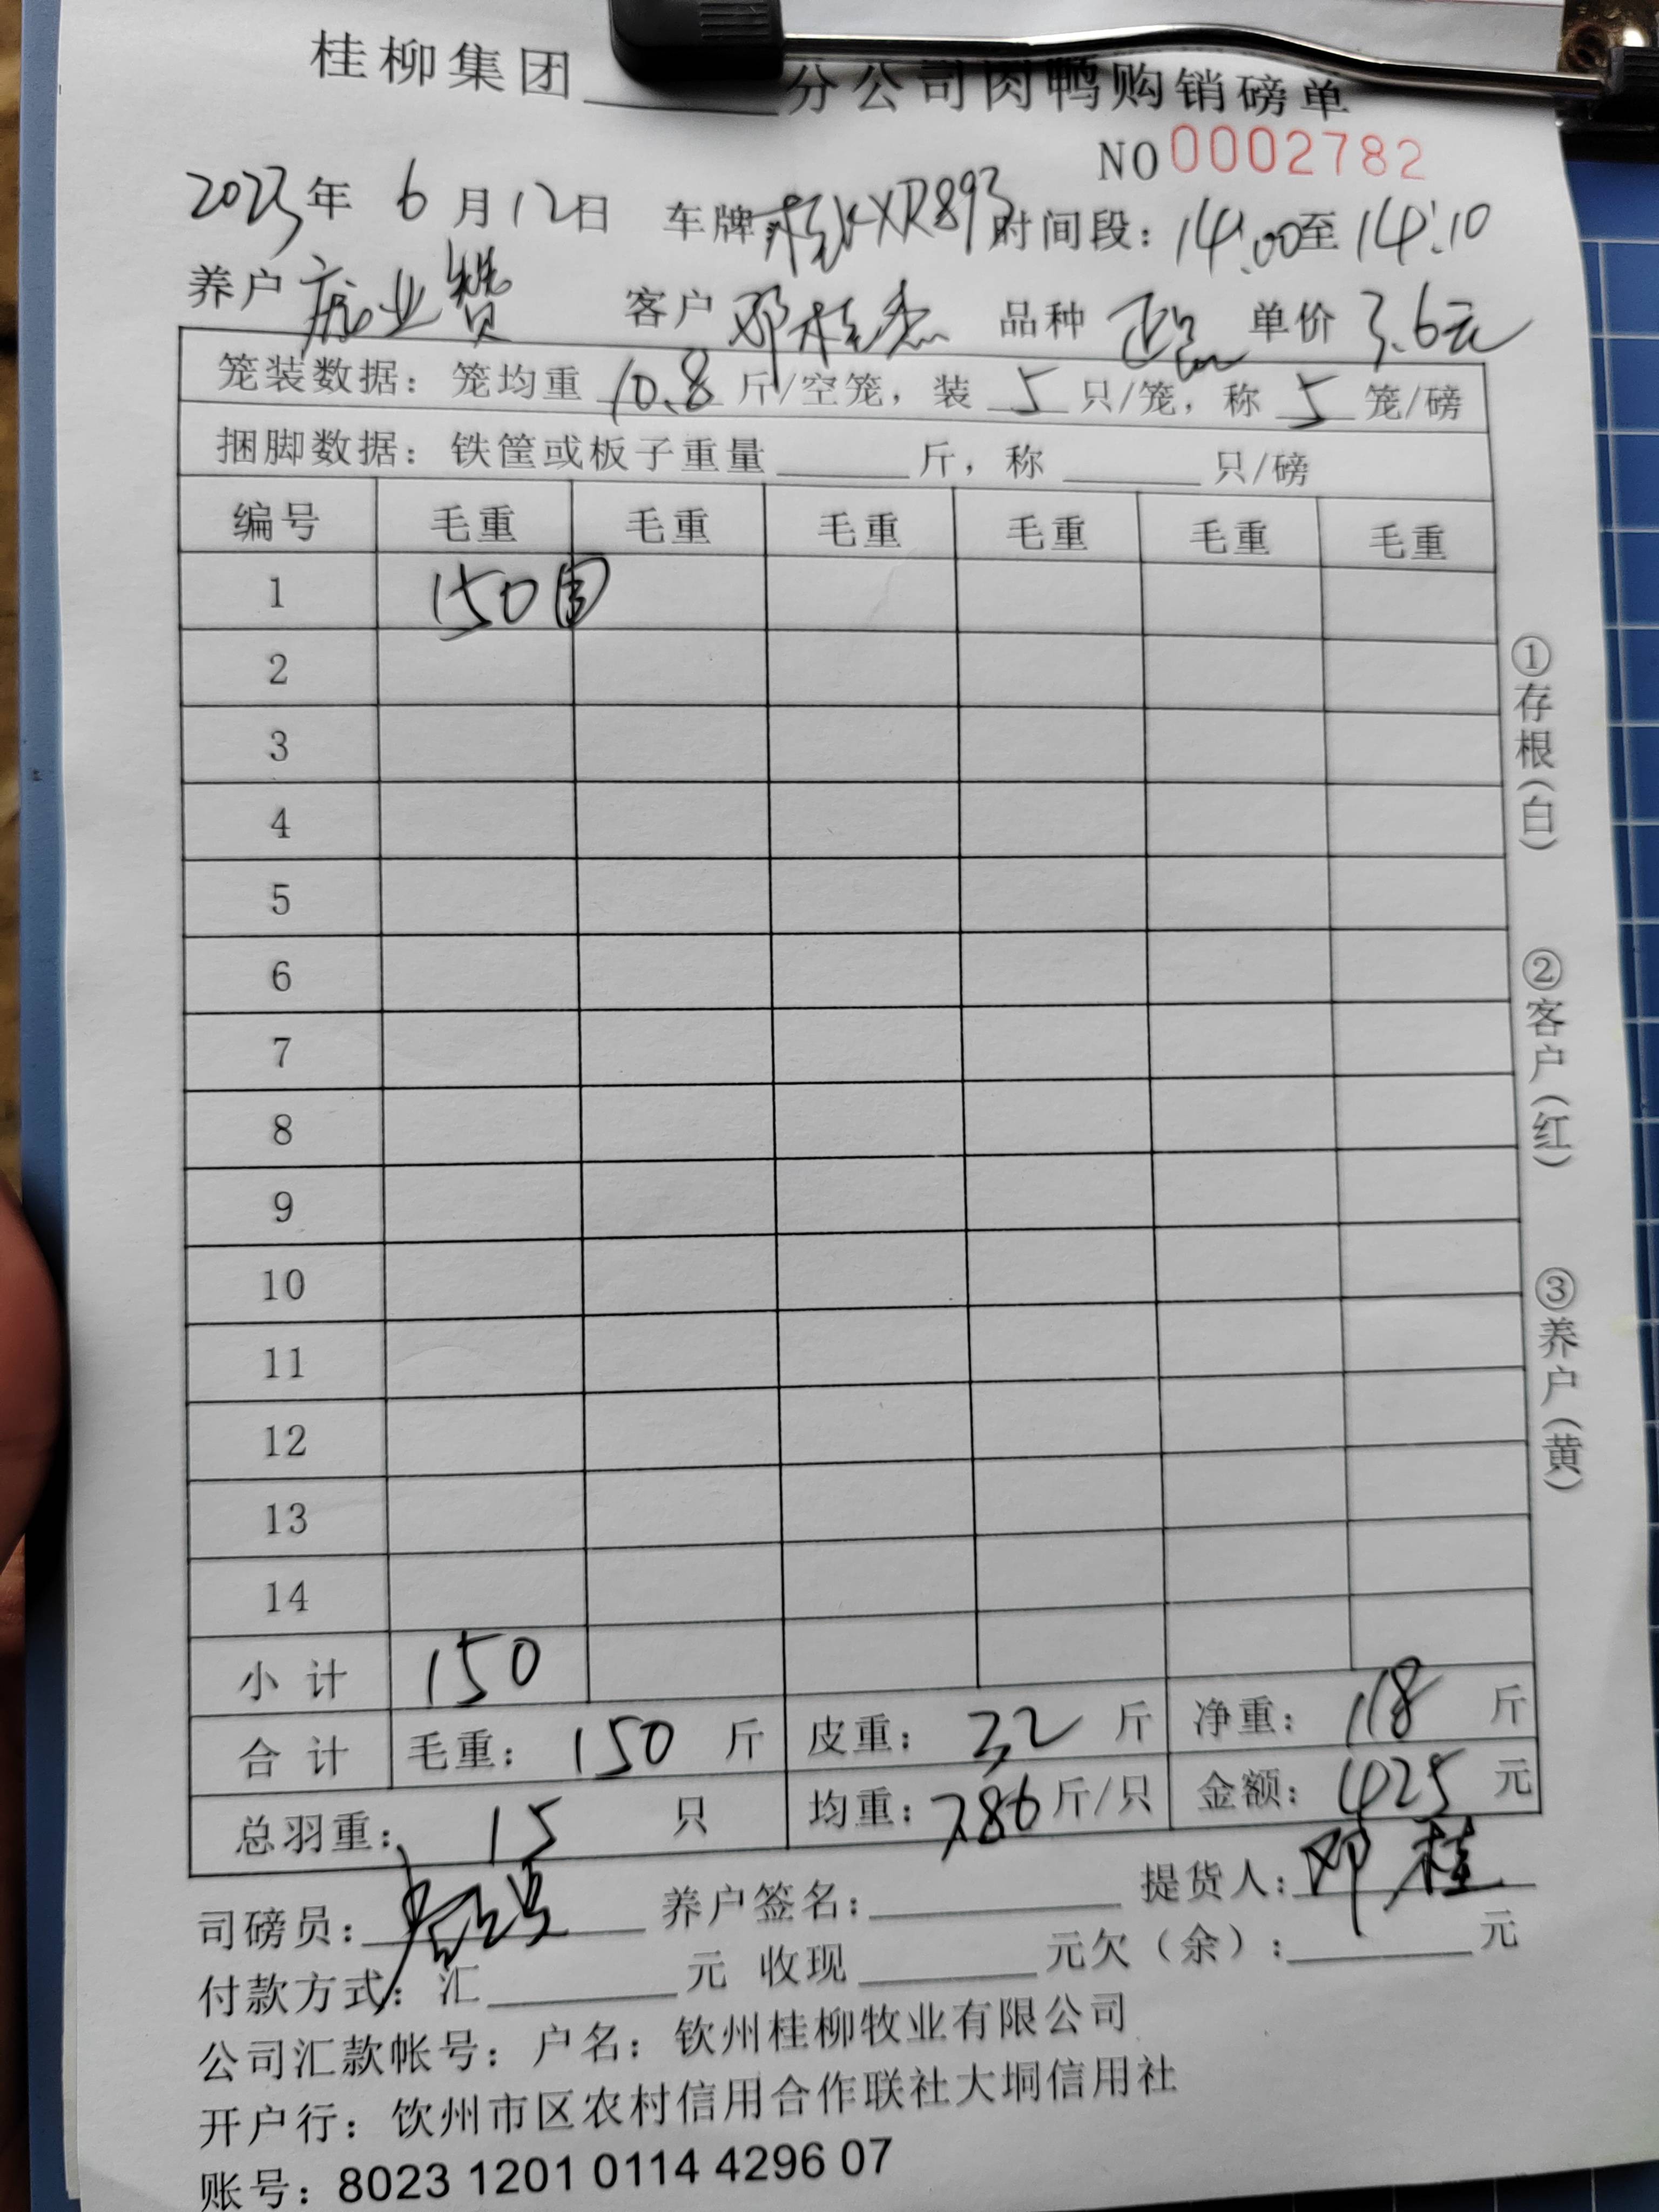 桂柳集团______分公司肉鸭购销磅单
NO 0002782
2023年 6月12日 车牌 XR893 时间段：14:00至14:10
养户 庞业赞 客户 邓桂杰 品种 正品 单价 3.6元
笼装数据：笼均重 10.8 斤/空笼，装 5 只/笼，称 5 笼/磅
捆脚数据：铁筐或板子重量______斤，称______只/磅
编号 毛重 毛重 毛重 毛重 毛重 毛重
1 150
2
3
4
5
6
7
8
9
10
11
12
13
14
小计 150
合计 毛重：150 斤 皮重：32 斤 净重：118 斤
总羽重：15 只 均重：7.86 斤/只 金额：425 元
司磅员： 养户签名：______ 提货人：邓桂
付款方式：汇______元 收现______元欠（余）：______元
公司汇款帐号：户名：钦州桂柳牧业有限公司
开户行：钦州市区农村信用合作联社大垌信用社
账号：8023 1201 0114 4296 07
①存根（白）
②客户（红）
③养户（黄）